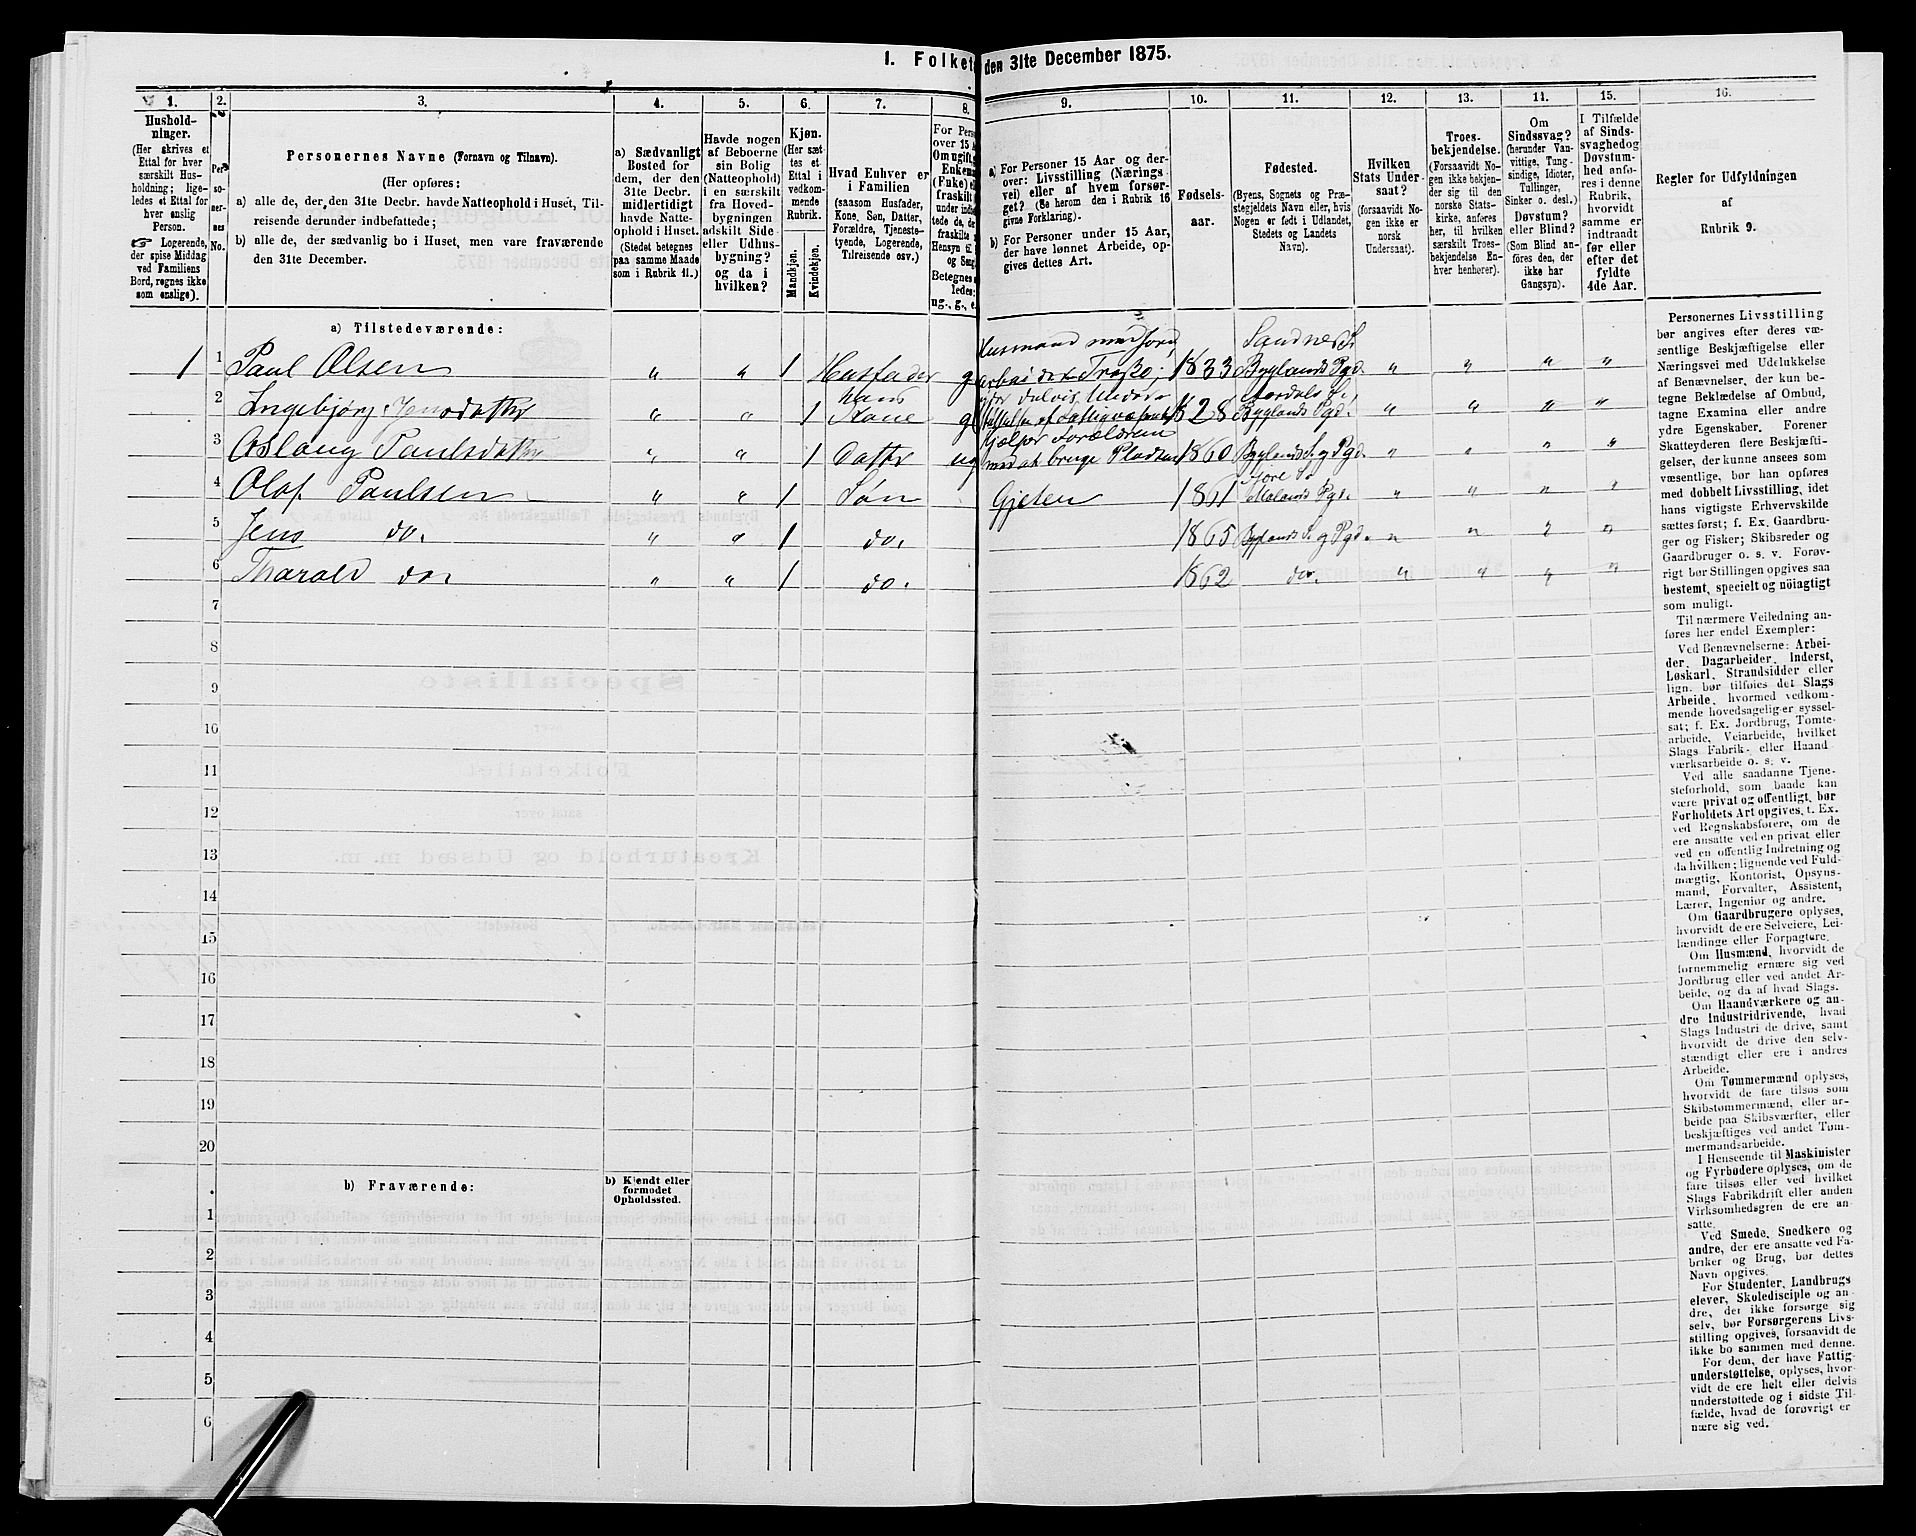 I. Folketæ
den 31te December 1875.
1.
2.
3.
4.
5.
6.
7.
8.
9.
10.
11.
12.
13.
14.
15.
16.
Hushold-
ninger.
(Her skrives et
Ettal for hver
særskilt Hus-
holdning; lige-
ledes et Ettal for
hver enslig
Person.
☞ Logerende,
der spise Middag
ved Familiens
Bord, regnes ikke
som enslige).
Per-
so-
ner-
nes
No.
Personernes Navne (Fornavn og Tilnavn).
(Her opføres:
a) alle de, der den 31te Decbr. havde Natteophold i Huset, Til-
reisende derunder indbefattede;
b) alle de, der sædvanlig bo i Huset, men vare fraværende
den 31te December.
a) Sædvanligt
Bosted for
dem, der den
31te Decbr.
midlertidigt
havde Natte-
ophold i Huset.
(Stedet betegnes
paa samme Maade
som i Rubrik 11.)
Havde nogen
af Beboerne
sin Bolig
(Natteophold)
i en særskilt
fra Hoved-
bygningen
adskilt Side-
eller Udhus-
bygning?
og da i
hvilken?
Kjøn.
(Her sæt-
tes et
Ettal i
vedkom-
mende
Rubrik.
Mandkjøn.
Kvindekjøn.
Hvad Enhver er
i Familien
(saasom Husfader,
Kone, Søn, Datter,
Forældre, Tjeneste-
tyende, Logerende,
Tilreisende osv.)
For Perso
over 15 A
Om ugift,
Enkema
(Enke) el
fraskilt
under indb
tede de, de
fraskilte
Hensyn til
og Seng
Betegnes
ledes:
ug., g., e.
a) For Personer 15 Aar og der-
over: Livsstilling (Nærings-
vei) eller af hvem forsør-
get? (Se herom den i Rubrik 16
givne Forklaring).
b) For Personer under 15 Aar,
der have lønnet Arbeide, op-
gives dettes Art.
Fødsels-
aar.
Fødested.
(Byens, Sognets og Præ-
stegjeldets Navn eller, hvis
Nogen er født i Udlandet,
Stedets og Landets
Navn).
Hvilken
Stats Under-
saat?
(forsaavidt No-
gen ikke er
norsk
Undersaat).
Troes-
bekjendelse.
(Forsaavidt No-
gen ikke bekjen-
der sig til den
norske Stats-
kirke, anføres
her, til hvilken
særskilt Troes-
bekjendelse En-
hver henhører).
Om
Sindssvag?
(herunder Van-
vittige, Tung-
sindige, Idioter,
Tullinger,
Sinker o. desl.)
Døvstum?
eller Blind?
(Som Blind an-
føres den, der
ikke har
Gangsyn).
I Tilfælde
af Sinds-
svaghed og
Døvstum-
hed anfø-
res i denne
Rubrik,
hvorvidt
samme er
indtraadt
før eller
efter det
fyldte
4de Aar.
Regler for Udfyldningen
af
Rubrik 9.
a) Tilstedeværende:
1 1 Paul Olsen " " 1 Husfader g Husmand med Jord, 1833 Sandnes S. Byglands Pgd. " " " "
2 Ingebjørg Jensdatter " " 1 hans Kone g 1828 Byglands Pgd. " " " "
3 Aslaug Paulsdatter " " 1 Datter ug hjelper Forældrene med at bruge Pladsen 1860 Byglands S. og Pgd. " " " "
4 Olaf Paulsen " " 1 Søn Gjeter 1861 Pgd. " " " "
5 Jens do. " " 1 do. 1865 Byglands S. og Pgd. " " " "
6 Tharald do. " " 1 do. 1862 do. " " " "
7
8
9
10
11
12
13
14
15
16
17
18
19
20
b) Fraværende:
b) Kjendt eller
formodet
Opholdssted.
1
2
3
4
5
6
Personernes Livsstilling
bør angives efter deres væ-
sentlige Beskjæftigelse eller
Næringsvei med Udelukkelse
af Benævnelser, der kun be-
tegne Beklædelse af Ombud,
tagne Examina eller andre
ydre Egenskaber. Forener
Skatteyderen flere Beskjæfti-
gelser, der kunne ansees som
væsentlige, bør han opføres
med dobbelt Livsstilling, idet
hans vigtigste Erhvervskilde
sættes først; f. Ex. Gaardbru-
ger og Fisker; Skibsreder og
Gaardbruger o. s. v. Forøv-
rigt bør Stillingen opgives saa
bestemt, specielt og nøiagtigt
som muligt.
Til nærmere Veiledning an-
føres her endel Exempler:
Ved Benævnelserne: Arbei-
der, Dagarbeider, Inderst,
Løskarl, Strandsidder eller
lign. bør tilføies det Slags
Arbeide, hvormed vedkom-
mende hovedsagelig er syssel-
sat; f. Ex. Jordbrug, Tomte-
arbeide, Veiarbeide, hvilket
Slags Fabrik- eller Haand-
værksarbeide o. s. v.
Ved alle saadanne Tjene-
steforhold, som baade kan
være privat og offentligt, bør
Forholdets Art opgives, t. Ex.
ved Regnskabsførere, om de
ere ansatte ved en privat eller
ved en offentlig Indretning og
da hvilken; lignende ved Fuld-
mægtig, Kontorist, Opsyns-
mand, Forvalter, Assistent,
Lærer, Ingeniør og andre.
Om Gaardbrugere oplyses,
hvorvidt de ere Selveiere, Lei-
lændinge eller Forpagtere.
Om Husmænd, hvorvidt de
fornemmelig ernære sig ved
Jordbrug eller ved andet Ar-
beide, og da af hvad Slags.
Om Haandværkere og an-
dre Industridrivende, hvad
Slags Industri de drive, samt
hvorvidt de drive den selv-
stændigt eller ere i andres
Arbeide.
Om Tømmermænd oplyses,
hvorvidt de fare tilsøs som
Skibstømmermænd, eller ar-
beide paa Skibsværfter, eller
beskjæftiges ved andet Tøm-
mermandsarbeide.
I Henseende til Maskinister
og Fyrbødere oplyses, om de
fare tilsøs eller ved hvilket
Slags Fabrikdrift eller anden
Virksomhedsgren de ere an-
satte.
Ved Smede, Snedkere og
andre, der ere ansatte ved Fa-
briker og Brug, bør dettes
Navn opgives.
For Studenter, Landbrugs-
elever, Skoledisciple og an-
dre, der ikke forsørge sig
selv, bør Forsørgerens Livs-
stilling opgives, forsaavidt de
ikke bo sammen med denne.
For dem, der have Fattig-
understøttelse, oplyses, hvor-
vidt de ere helt eller delvis
understøttede og i sidste Til-
fælde, hvad de forøvrigt er-
nære sig ved.